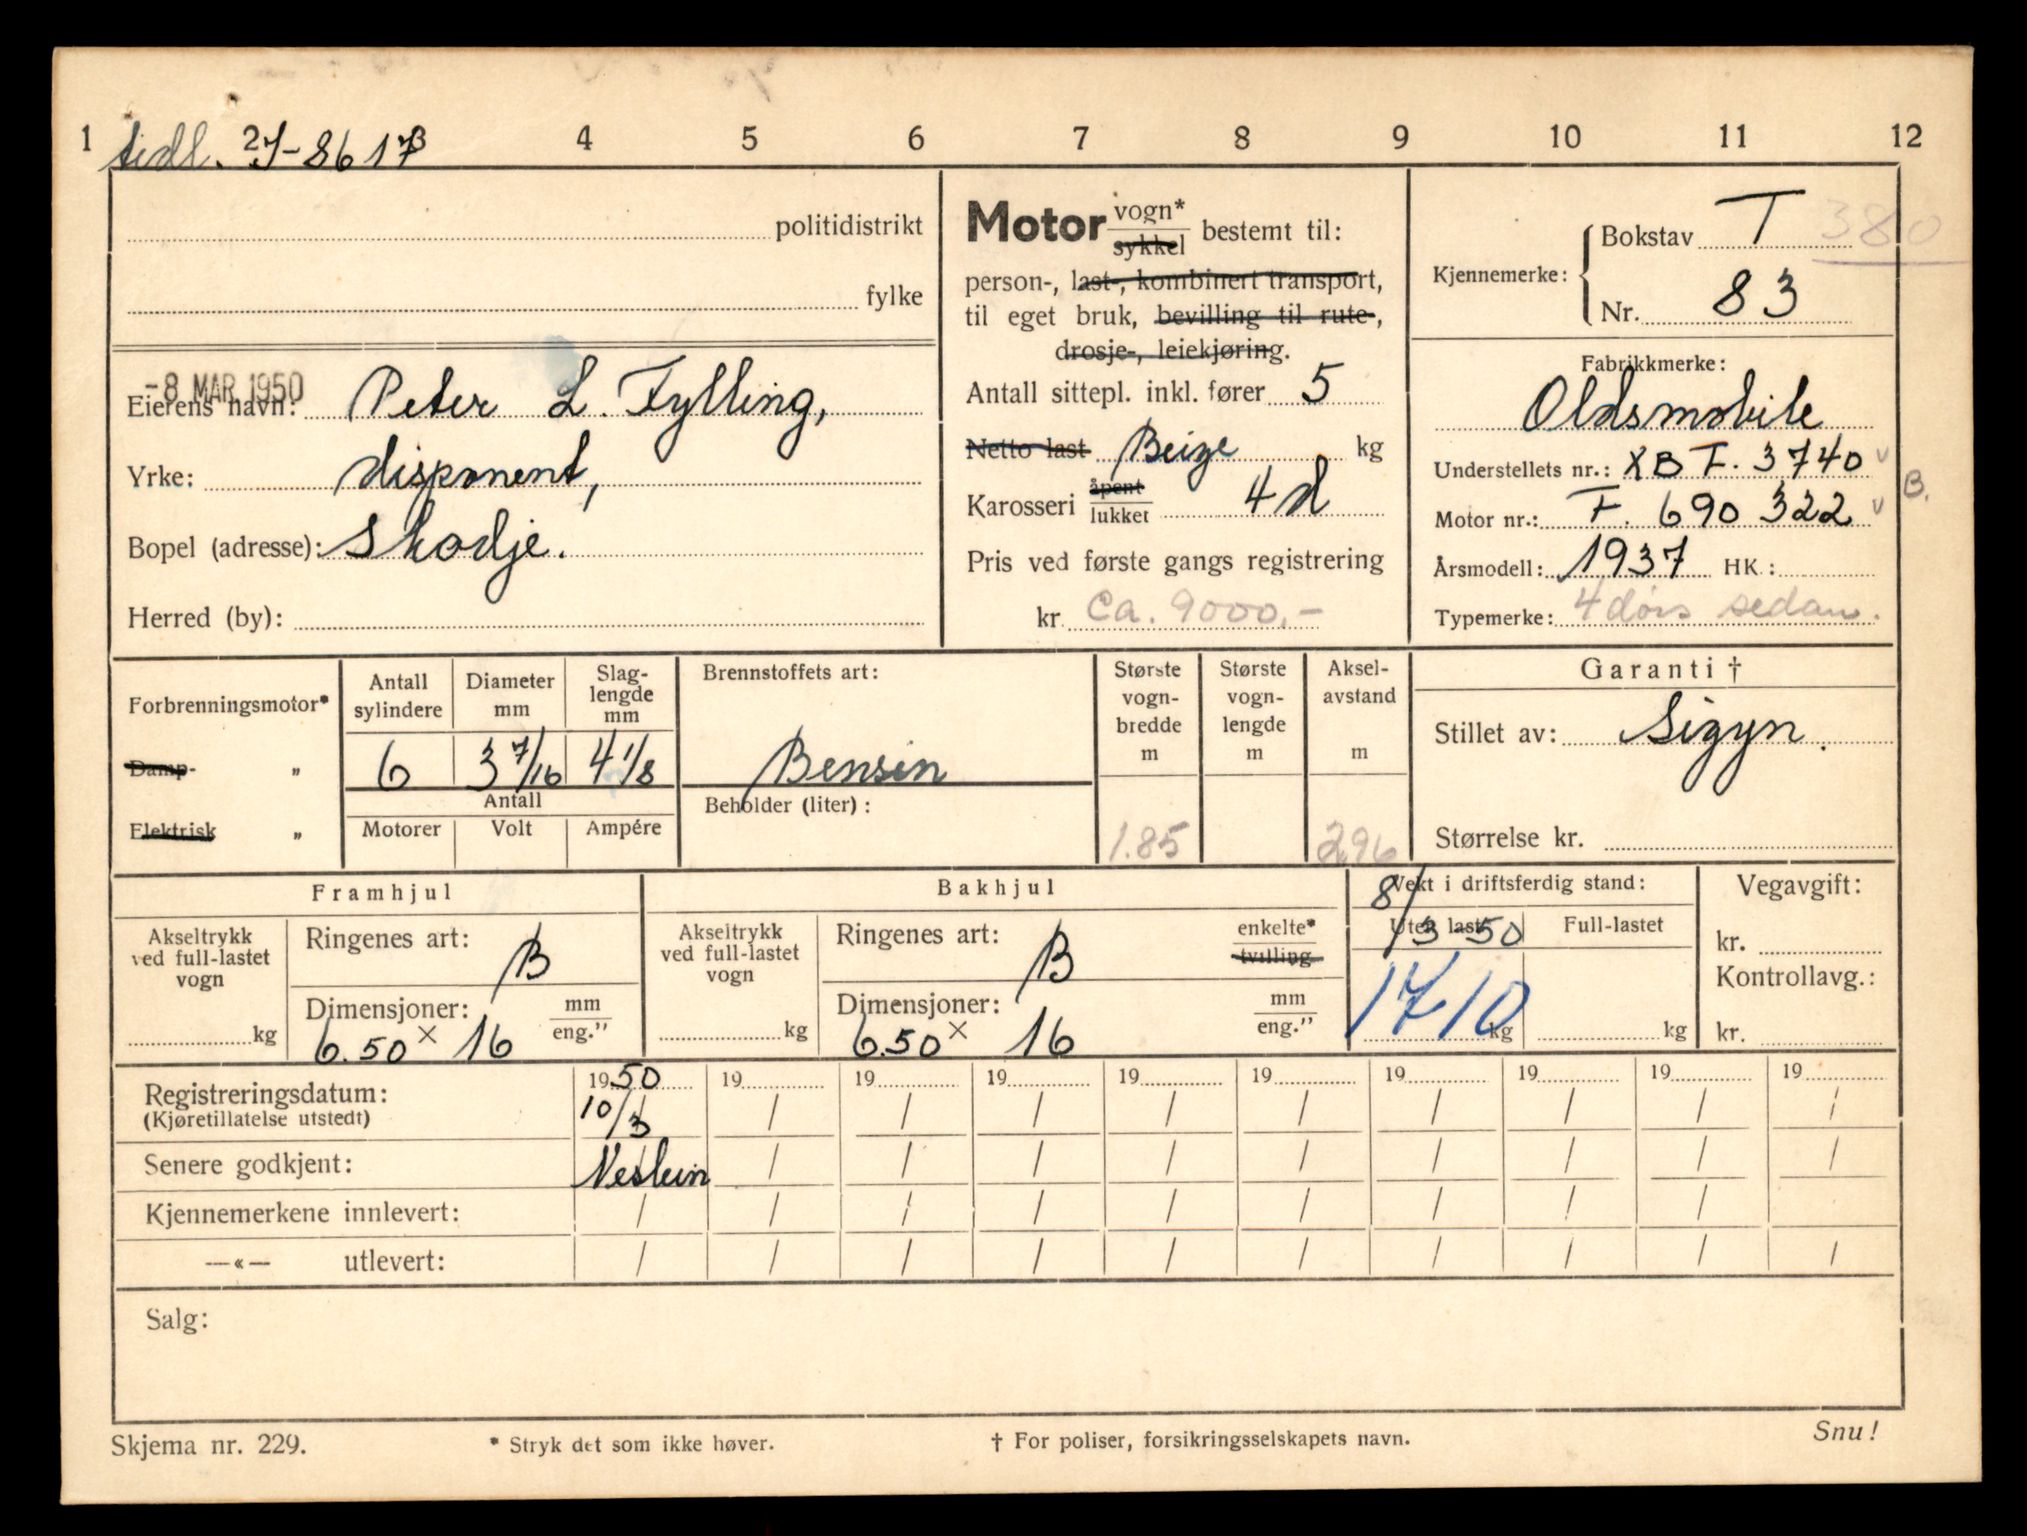 1 2 3 4 5 6 7 8 9 10 11 12
tidl. J-8617
politidistrikt
fylke
-8 MAR 1950
Eierens navn: Peter L. Fylling,
Yrke: disponent,
Bopel (adresse): Skodje.
Herred (by):
Motor vogn* sykkel bestemt til:
person-, last-, kombinert transport,
til eget bruk, bevilling til rute-,
drosje-, leiekjøring.
Antall sittepl. inkl. fører 5
Netto last Beige kg
Karosseri åpent lukket 4 d
Pris ved første gangs registrering
kr. Ca. 9000,-
Kjennemerke: Bokstav T 380
Nr. 83
Fabrikkmerke:
Oldsmobile
Understellets nr.: XBF. 3740 v
B.
Motor nr.: F. 690 322 v
Årsmodell: 1937 HK.:
Typemerke: 4 dørs sedan.
Forbrenningsmotor*
Damp- „
Elektrisk „
Antall sylindere
6
Diameter mm
3 7/16
Slag-lengde mm
4 1/8
Antall
Motorer Volt Ampére
Brennstoffets art:
Bensin
Beholder (liter):
Største vogn-bredde m
1.85
Største vogn-lengde m
Aksel-avstand m
2,96
Garanti †
Stillet av: Sigyn.
Størrelse kr.
Framhjul
Akseltrykk ved full-lastet vogn
kg
Ringenes art: B
Dimensjoner: mm eng."
6.50 x 16
Bakhjul
Akseltrykk ved full-lastet vogn
kg
Ringenes art: B enkelte* tvilling
Dimensjoner: mm eng."
6.50 x 16
Vekt i driftsferdig stand:
8/3 50
Uten last Full-lastet
1710 kg kg
Vegavgift:
kr.
Kontrollavg.:
kr.
Registreringsdatum: 1950 19 19 19 19 19 19 19 19 19
(Kjøretillatelse utstedt) 10/3 / / / / / / / / /
Senere godkjent: / / / / / / / / /
Kjennemerkene innlevert: / / / / / / / /
—«— utlevert: / / / / / / / / / /
Salg:
Skjema nr. 229. * Stryk det som ikke høver. † For poliser, forsikringsselskapets navn. Snu!